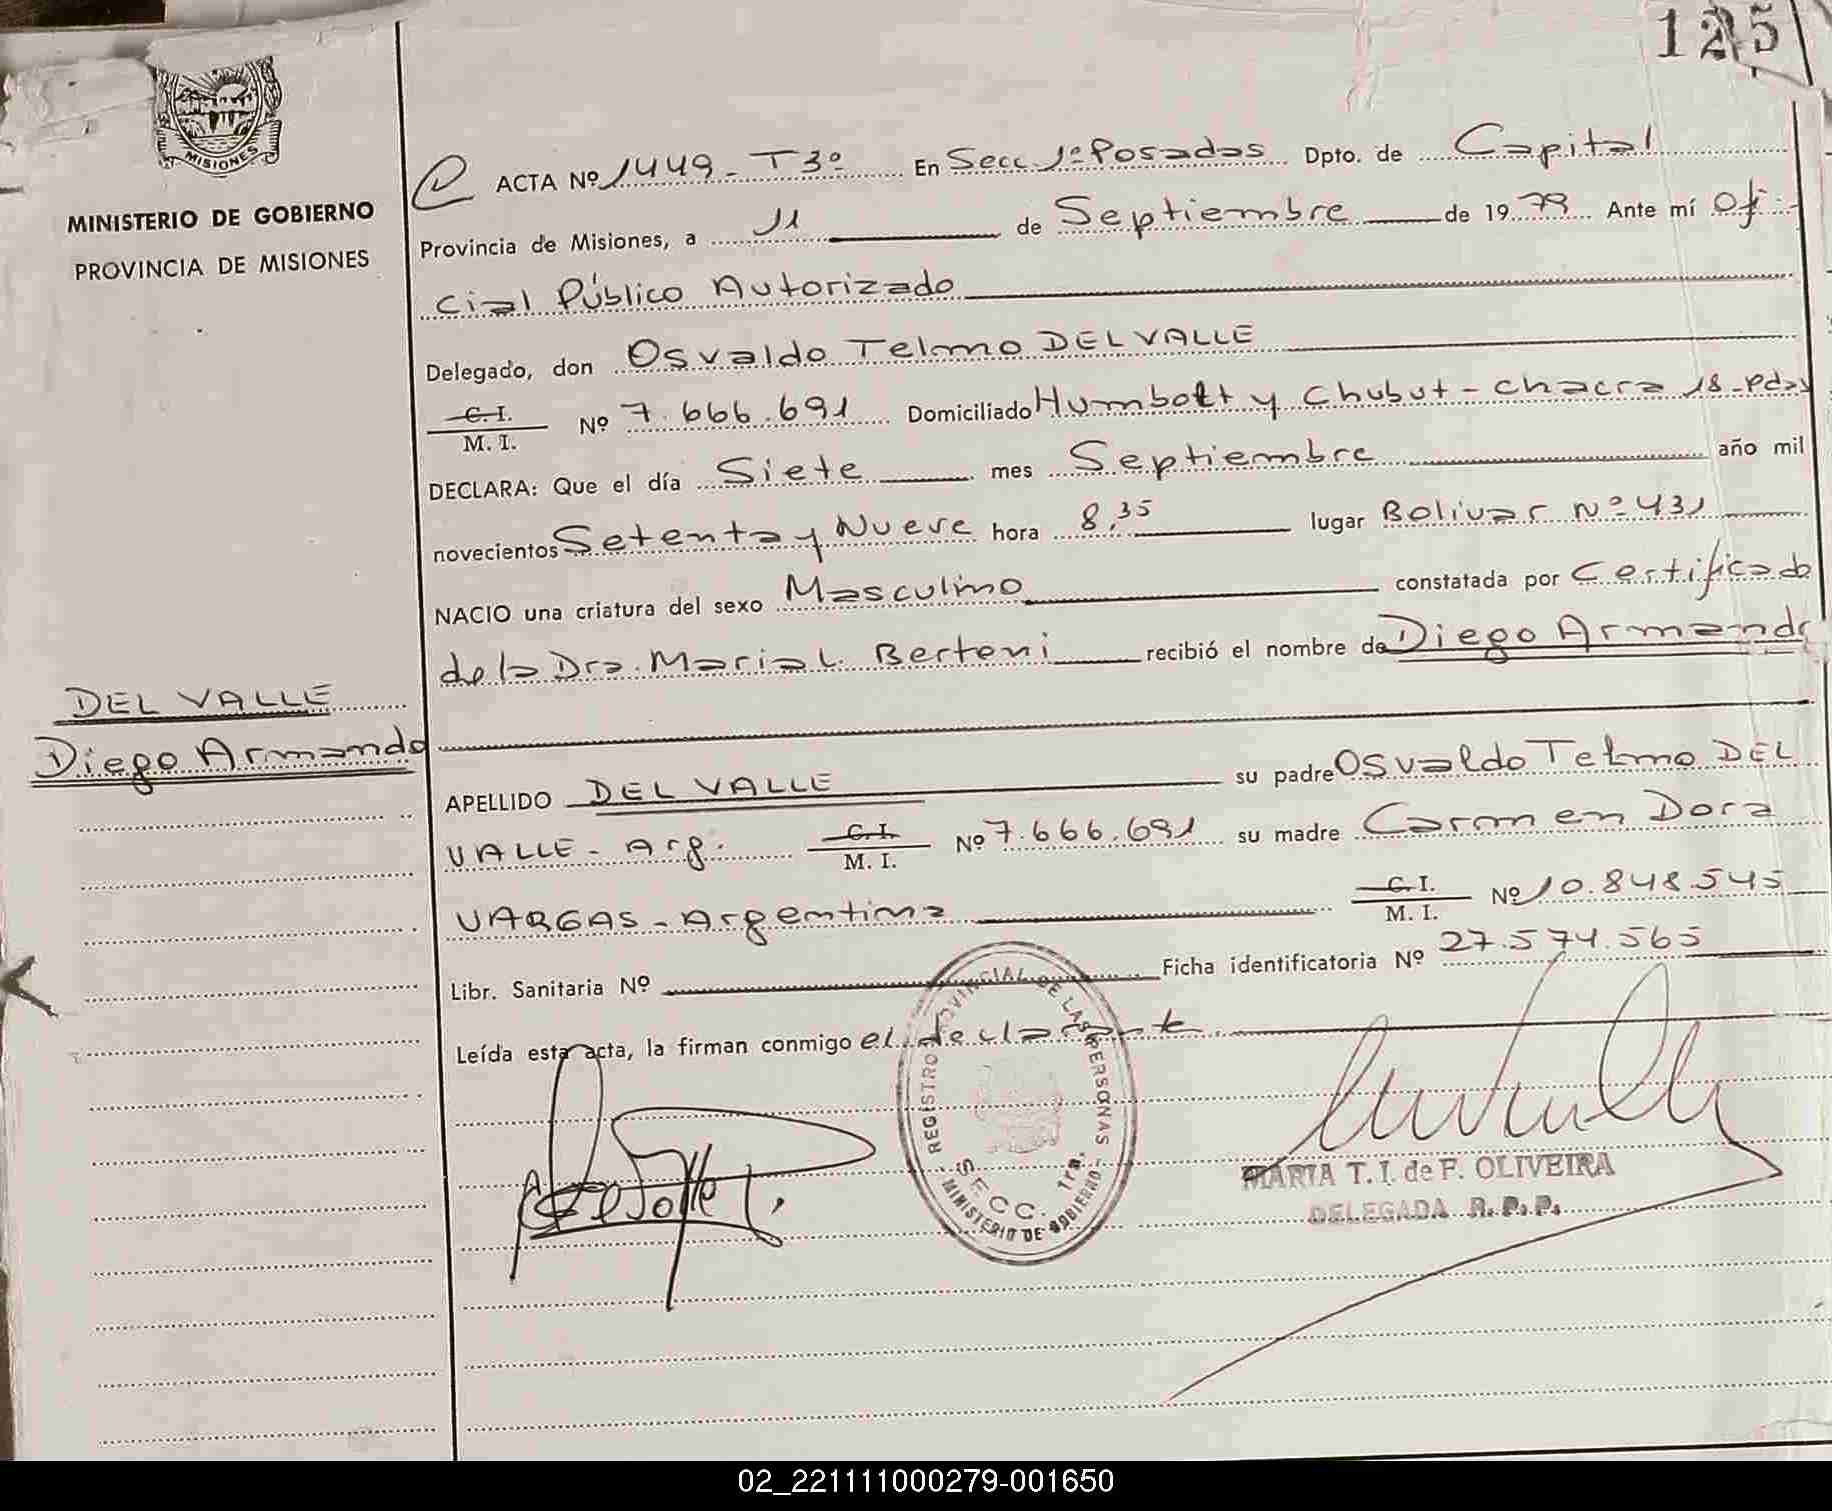 125
MISIONES
MINISTERIO DE GOBIERNO
PROVINCIA DE MISIONES
DEL VALLE
Diego Armando
ACTA Nº 1449 - T3º En Secc. 1º Posadas Dpto. de Capital
Provincia de Misiones, a 11 de Septiembre de 1979 Ante mí Ofi-
cial Público Autorizado
Delegado, don Osvaldo Telmo DEL VALLE
C. I.
M. I. Nº 7.666.691 Domiciliado Humbolt y Chubut - chacra 18 - Pdas
DECLARA: Que el día Siete mes Septiembre año mil
novecientos Setenta y Nueve hora 8,35 lugar Bolivar Nº 431
NACIO una criatura del sexo Masculino constatada por Certificado
de la Dra. Maria L. Bertoni recibió el nombre de Diego Armando
APELLIDO DEL VALLE su padre Osvaldo Telmo DEL
VALLE - Arg. C. I. M. I. Nº 7.666.691 su madre Carmen Dora
VARGAS - Argentina C. I. M. I. Nº 10.848.545
Libr. Sanitaria Nº Ficha identificatoria Nº 27.574.565
Leída esta acta, la firman conmigo el declarante
REGISTRO PROVINCIAL DE LAS PERSONAS - MINISTERIO DE GOBIERNO -
SECC. 1ra.
MARIA T. I. de F. OLIVEIRA
DELEGADA R. P. P.
02_221111000279-001650